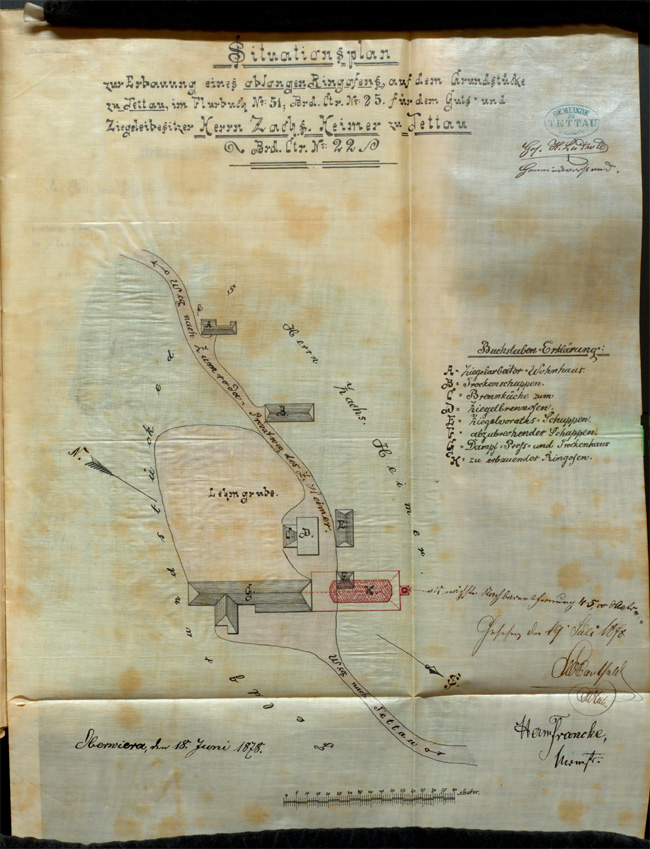 Situationsplan
zur Erbauung eines oblongen Ringofens, auf dem Grundstücke
zu Tettau, im Flurbuch No: 51, Brd. Ctr. No: 25. für dem Guts- und
Ziegeleibesitzer Herrn Zachs. Heimer zu Tettau
Brd. Ctr. No: 22
GEMEINDE
ZU
TETTAU
Gemeindevorstand.
Weg nach Zumroda.
Privatweg des Z. Heimer.
Herrn Zachs. Heimer.
Feldgrundstücke
N.
Lehmgrube.
Buchstaben-Erklärung:
Ziegelarbeiter-Wohnhaus.
Trockenschuppen.
Brennküche zum
Ziegelbrennofen.
Ziegelvoraths-Schuppen.
abzubrechender Schuppen.
Dampf-Press- und Trockenhaus
zu erbauender Ringofen.
Gesehen den 19 Juli 1878
S.
Weg nach Tettau
Oberwiera, den 18. Juni 1878.
Herm. Francke,
Meter.